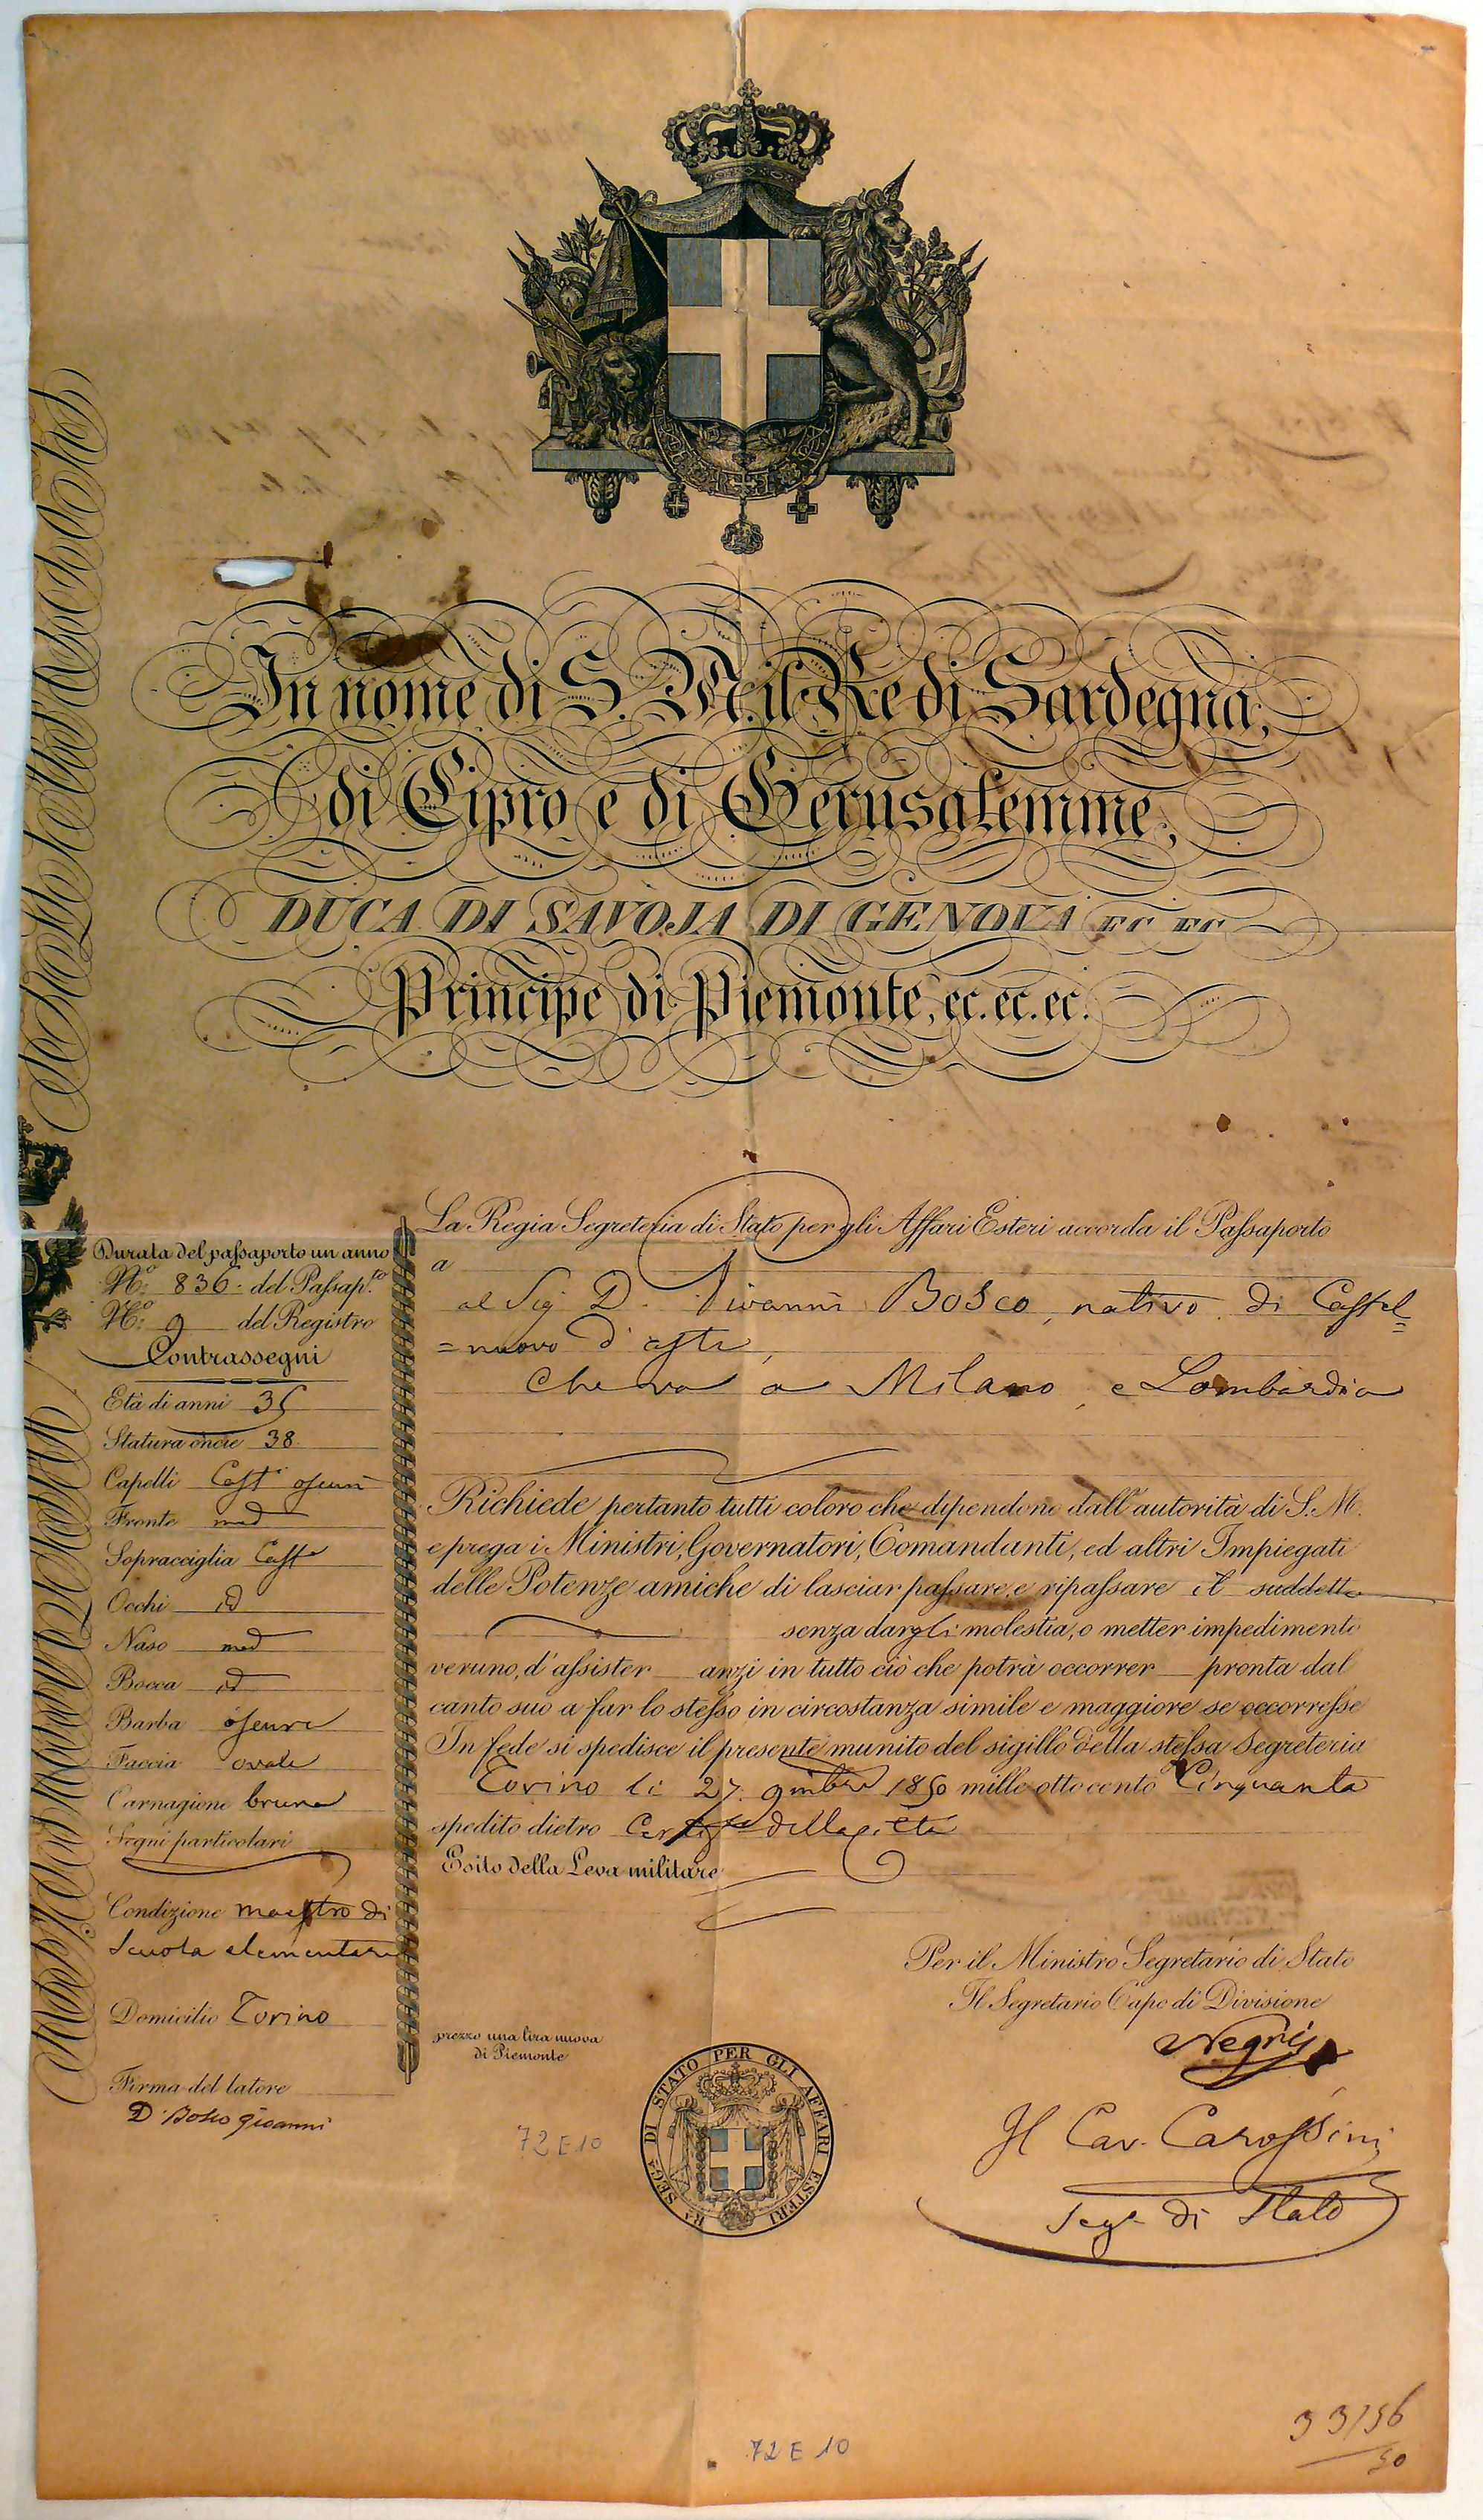 In nome di S. M. il Re di Sardegna,
di Cipro e di Gerusalemme,
DUCA DI SAVOJA DI GENOVA EC. EC.
Principe di Piemonte, ec. ec. ec.
Durata del passaporto un anno
N.o 836 del Passap.to
N.o 9 del Registro
Contrassegni
Età di anni 35
Statura oncie 38
Capelli Cast.i oscuri
Fronte med
Sopracciglia Cast.e
Occhi id
Naso med
Bocca id
Barba oscura
Faccia ovale
Carnagione bruna
Segni particolari
Condizione maestro di
scuola elementare
Domicilio Torino
Firma del latore
D. Bosco Gioanni
La Regia Segreteria di Stato per gli Affari Esteri accorda il Passaporto
a
al Sig. D. Giovanni Bosco, nativo di Castel=
=nuovo d'Asti,
che va a Milano, e Lombardia
Richiede pertanto tutti coloro che dipendono dall'autorità di S. M.
e prega i Ministri, Governatori, Comandanti, ed altri Impiegati
delle Potenze amiche di lasciar passare, e ripassare il suddetto
senza dargli molestia, o metter impedimento
veruno, d'assister anzi in tutto ciò che potrà occorrer pronta dal
canto suo a far lo stesso in circostanza simile e maggiore se occorresse
In fede si spedisce il presente munito del sigillo della stessa Segreteria
Torino li 27. 9mbre 1850 mille otto cento Cinquanta
spedito dietro della città
Esito della Leva militare
Per il Ministro Segretario di Stato
Il Segretario Capo di Divisione
Negri
Il Cav. Carossini
Seg.o di Stato
prezzo una lira nuova
di Piemonte
RA SEGA DI STATO PER GLI AFFARI ESTERI
72 E 10
72 E 10
33156
50